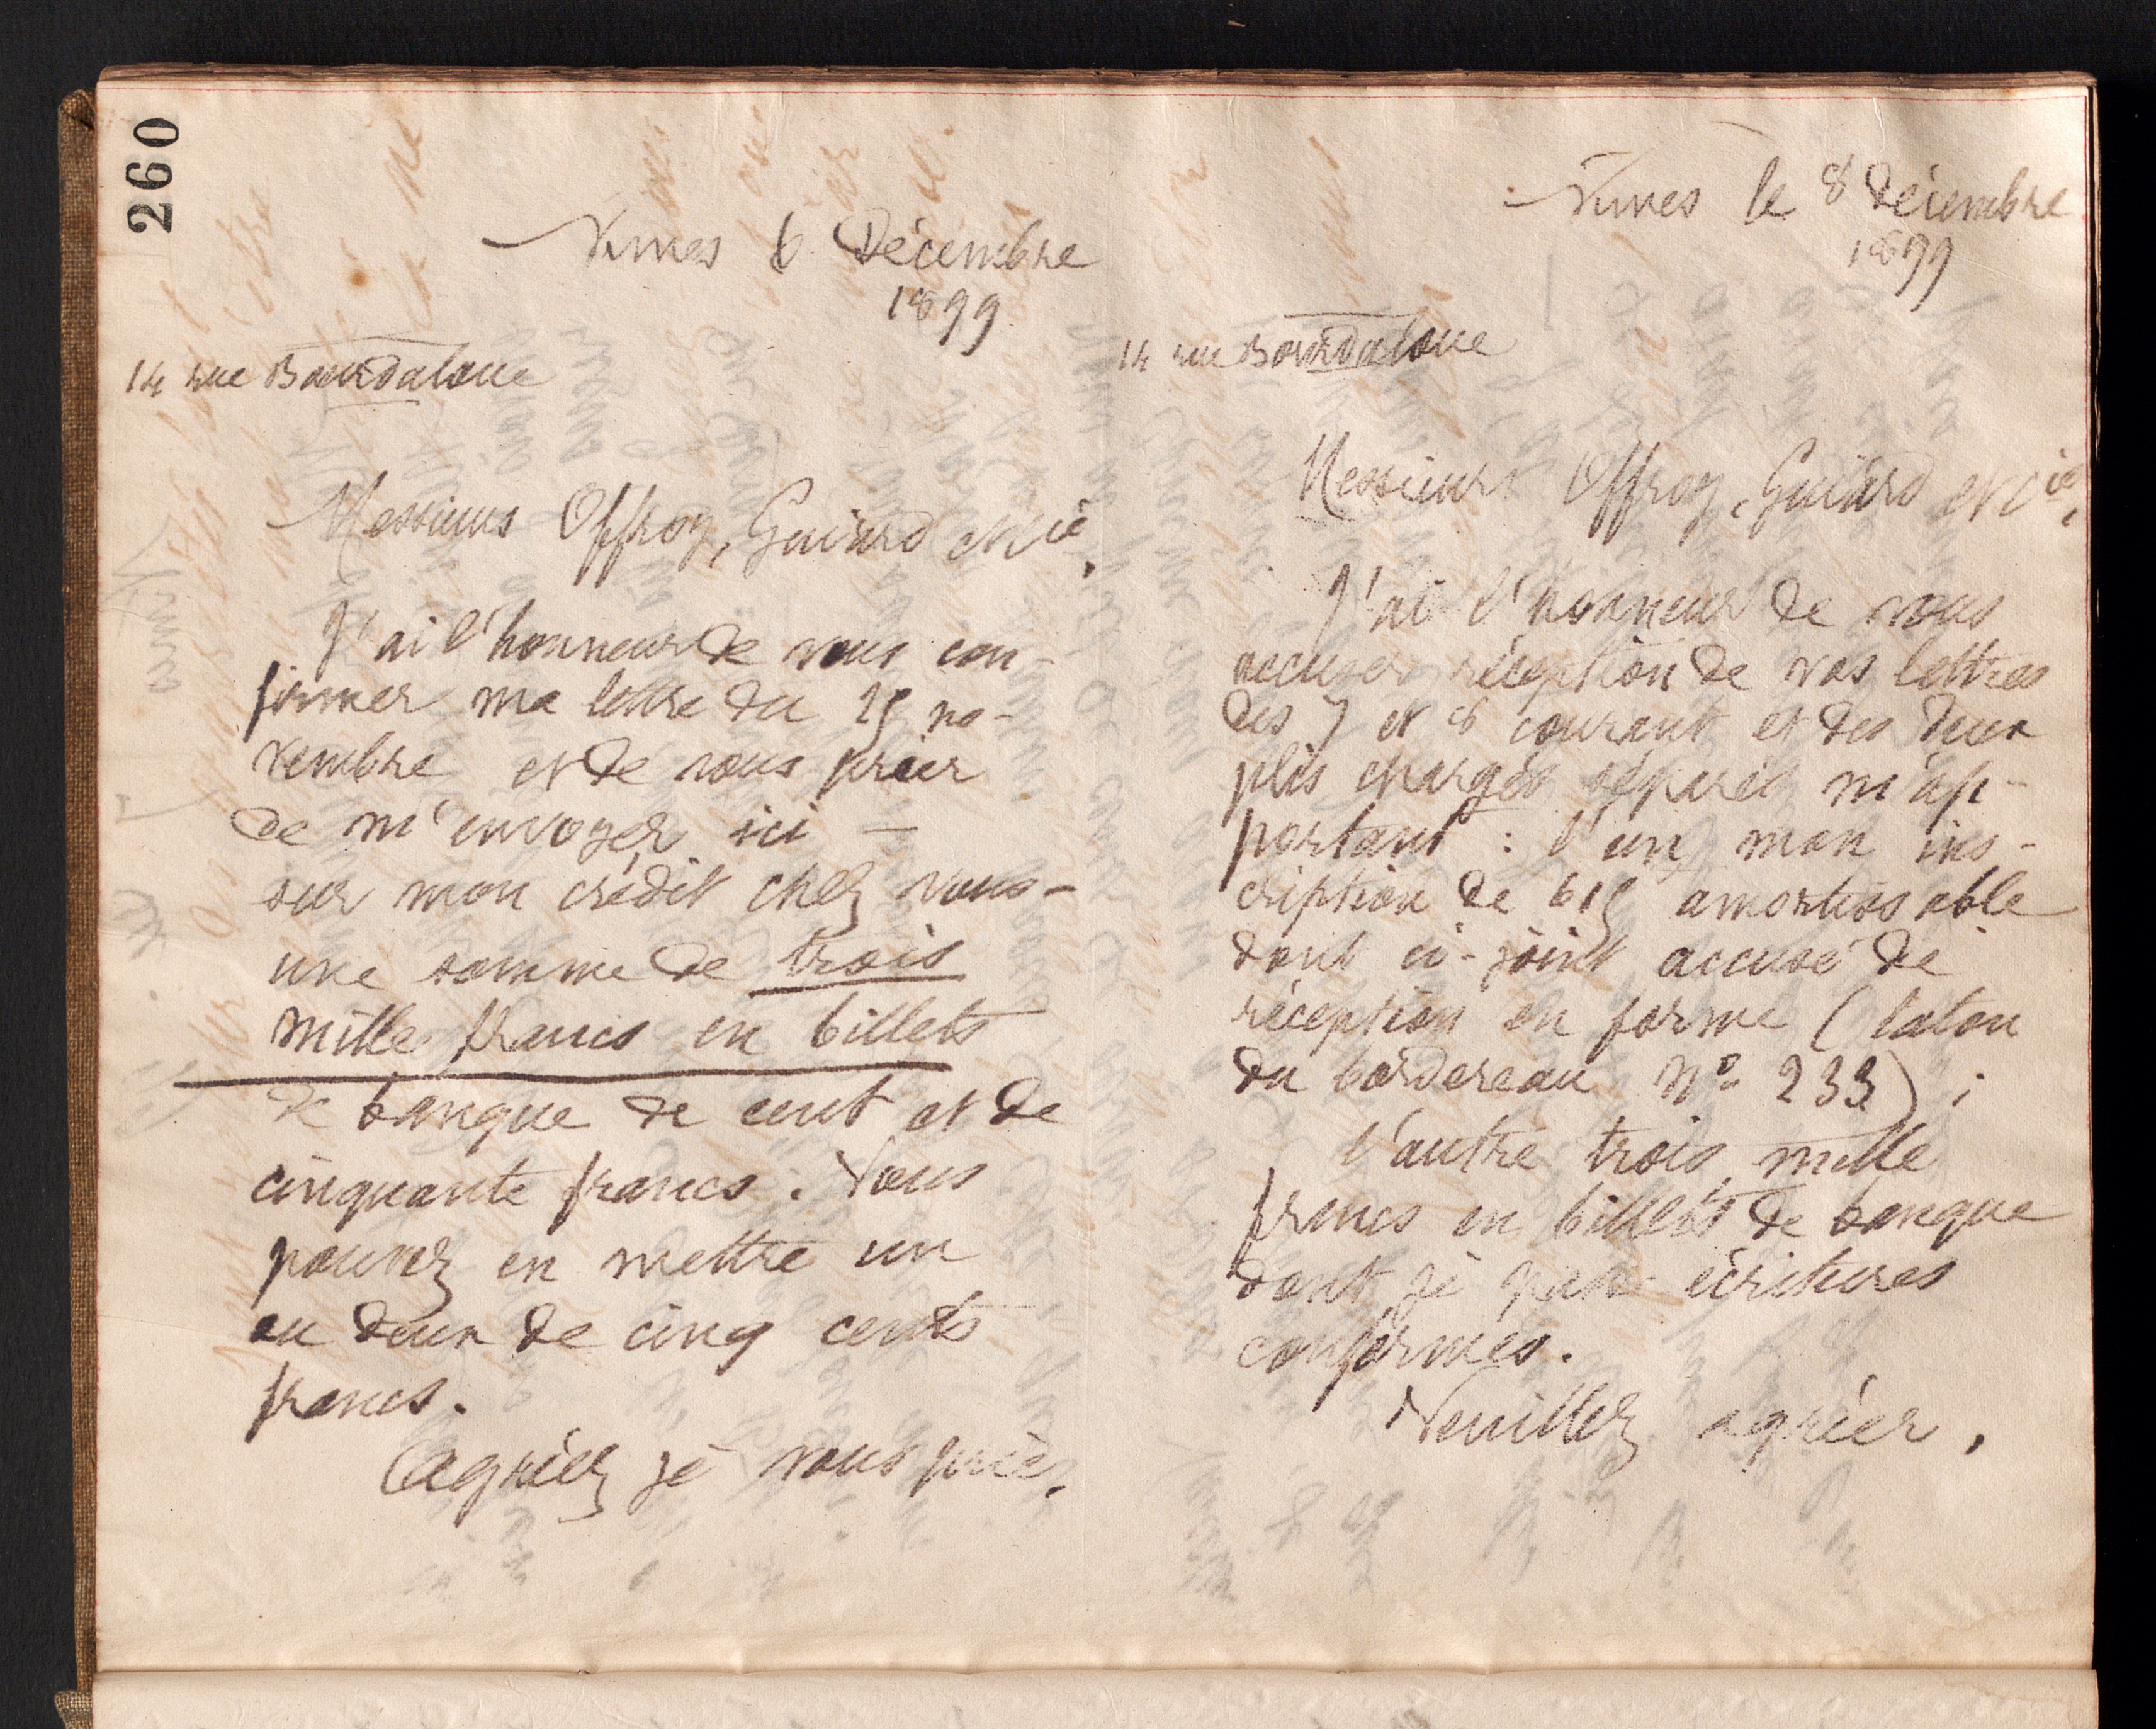 260
Nimes 6 Décembre
1899
14 rue Bourdaloue
Messieurs Offroy, Guiard et Cie,
J'ai l'honneur de vous con-
firmer ma lettre du 25 no-
vembre et de vous prier
de m'envoyer ici —
sur mon crédit chez vous —
une somme de trois
mille francs en billets
de banque de cent et de
cinquante francs. Vous
pouvez en mettre un
ou deux de cinq cents
francs.
Agréez je vous prie,
Nimes le 8 décembre
1899
14 rue Bourdaloue
Messieurs Offroy, Guiard et Cie,
J'ai l'honneur de vous
accuser réception de vos lettres
des 7 et 8 courant et des deux
plis chargés séparés m'ap-
portant : l'un mon ins-
cription de 615 amortissable
dont ci-joint accusé de
réception en forme (talon
du bordereau No 233) ;
l'autre trois mille
francs en billets de banque
dont je passe écritures
conformes.
Veuillez agréer,